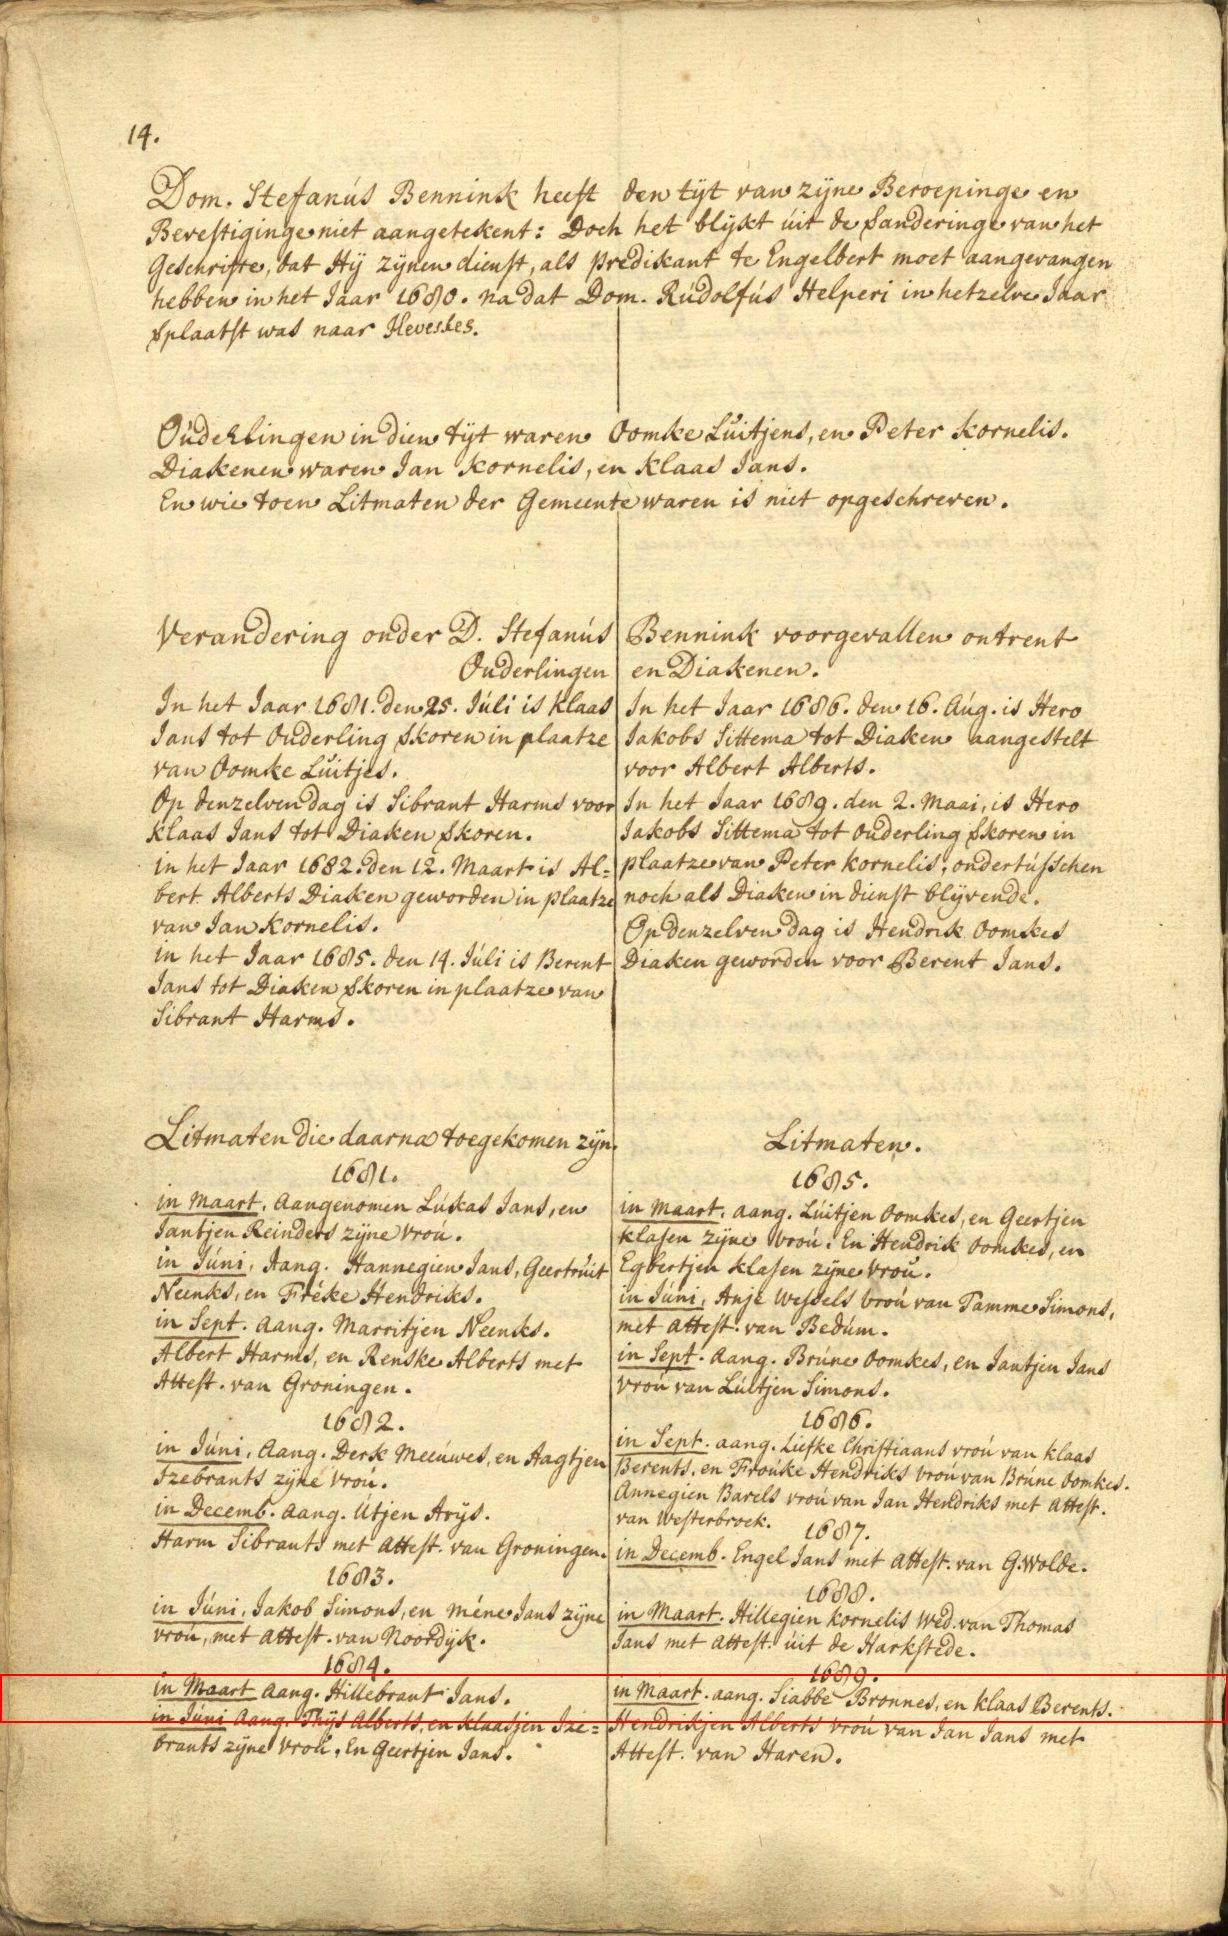 14.
Dom. Stefanús Bennink heeft den tÿt van zÿne Beroepinge en
Bevestiginge niet aangetekent: Doch het blÿkt úit de
Geschrifte, dat Hÿ zÿnen dienst, als predikant te Engelbert moet aangevangen
hebben in het Jaar 1680. na dat Dom. Rúdolfús Helperi in hetzelve Jaar
was naar Heveskes.
Oúderlingen in dien tÿt waren Oomke Lúitjens, en Peter Kornelis.
Diakenen waren Jan Kornelis, en Klaas Jans.
En wie toen Litmaten der Gemeente waren is niet opgeschreven.
Verandering onder D. Stefanús Bennink voorgevallen ontrent
Ouderlingen en Diakenen.
In het Jaar 1681. den 25. Júli is Klaas
Jans tot Ouderling in plaatze
van Oomke Lúitjes.
Op denzelven dag is Sibrant Harms voor
Klaas Jans tot Diaken
in het Jaar 1682. den 12. Maart is Al=
bert Alberts Diaken geworden in plaatze
van Jan Kornelis.
in het Jaar 1685. den 14. Júli is Berent
Jans tot Diaken in plaatze van
Sibrant Harms.
In het Jaar 1686. den 16. Aúg. is Hero
Jakobs Sittema tot Diaken aangestelt
voor Albert Alberts.
In het Jaar 1689. den 2. Maai, is Hero
Jakobs Sittema tot Ouderling in
plaatze van Peter Kornelis, ondertússchen
noch als Diaken in dienst blÿvende.
Op denzelven dag is Hendrik Oomkes
Diaken geworden voor Berent Jans.
Litmaten die daarna toegekomen zÿn.
1681.
in Maart. Aangenomen Lúkas Jans, en
Jantjen Reinders zÿne vroú.
in Júni, Aang. Hannegien Jans, Geertrúit
Neenks, en Fréke Hendriks.
in Sept. aang. Marritjen Neenks.
Albert Harms, en Renske Alberts met
Attest. van Groningen.
1682.
in Júni, Aang. Derk Meeúwes, en Aagtjen
Izebrants zÿne vroú.
in Decemb. aang. Útjen Arÿs.
Harm Sibrants met Attest. van Groningen.
1683.
in Júni, Jakob Simons, en Méne Jans zÿne
vroú, met Attest. van Noordÿk.
1684.
in Maart aang. Hillebrant Jans.
in Júni Aang. Thÿs Alberts, en Klaasjen Ize=
brants zÿne vroú, En Geertjen Jans.
Litmaten.
1685.
in Maart. aang. Lúitjen Oomkes, en Geertjen
Klasen zÿne vroú. En Hendrik Oomkes, en
Egbertjen Klasen zÿne vroú.
in Júni, Anje Wessels vroú van Tamme Simons,
met Attest. van Bedúm.
in Sept. aang. Brúne Oomkes, en Jantjen Jans
vroú van Lúltjen Simons.
1686.
in Sept. aang. Liefke Christiaans vroú van Klaas
Berents, en Froúke Hendriks vroú van Brúne Oomkes.
Annegien Barels vroú van Jan Hendriks met Attest.
van Westerbroek.
1687.
in Decemb. Engel Jans met Attest. van G.Wolde.
1688.
in Maart. Hillegien Kornelis Wed. van Thomas
Jans met Attest. úit de Harkstede.
1689.
in Maart. aang. Siabbe Bronnes, en Klaas Berents.
Hendrikjen Alberts vroú van Jan Jans met
Attest. van Haren.